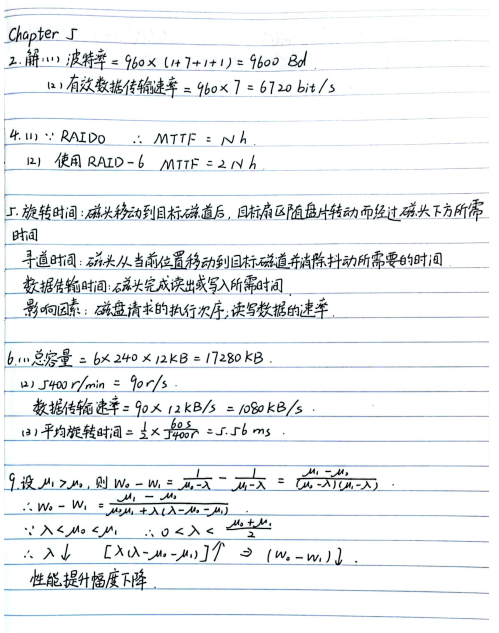 Chapter 5
2.解:(1) 波特率 = 960×(1+7+1+1) = 9600 Bd
(2) 有效数据传输速率 = 960×7 = 6720 bit/s
4.(1) ∵ RAID0 ∴ MTTF = N h.
(2) 使用RAID-6 MTTF = 2N h.
5.旋转时间:磁头移动到目标磁道后,目标扇区随盘片转动而经过磁头下方所需
时间
寻道时间:磁头从当前位置移动到目标磁道并消除抖动所需要的时间
数据传输时间:磁头完成读出或写入所需时间
影响因素:磁盘请求的执行次序,读写数据的速率.
6.(1)总容量 = 6×240×12KB = 17280KB.
(2) 5400 r/min = 90r/s.
数据传输速率 = 90×12KB/s = 1080KB/s.
(3)平均旋转时间 = 1/2 × 60s/5400r = 5.56 ms.
9.设 μ₁>μ₀, 则 W₀-W₁ = 1/(μ₀-λ) - 1/(μ₁-λ) = (μ₁-μ₀)/((μ₀-λ)(μ₁-λ)).
∴ W₀-W₁ = (μ₁-μ₀)/(μ₀μ₁+λ(λ-μ₀-μ₁))
∵ λ<μ₀<μ₁ ∴ 0<λ<(μ₀+μ₁)/2
∴ λ↓ [λ(λ-μ₀-μ₁)]↑ ⇒ (W₀-W₁)↓.
性能提升幅度下降.